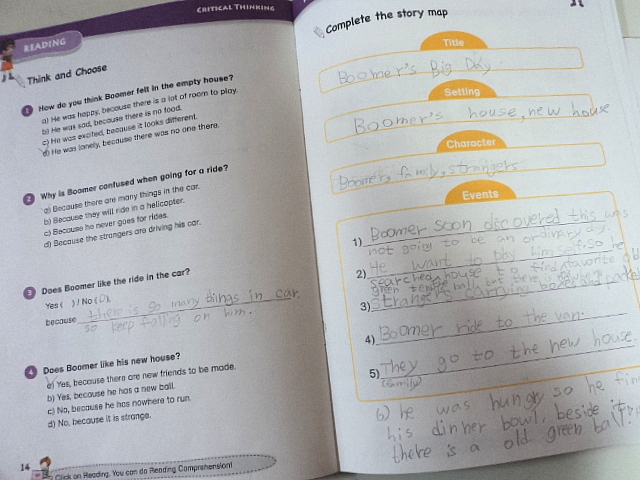 READING
CRITICAL THINKING
Think and Choose
1 How do you think Boomer felt in the empty house?
a) He was happy, because there is a lot of room to play.
b) He was sad, because there is no food.
c) He was excited, because it looks different.
d) He was lonely, because there was no one there.
2 Why is Boomer confused when going for a ride?
a) Because there are many things in the car.
b) Because they will ride in a helicopter.
c) Because he never goes for rides.
d) Because the strangers are driving his car.
3 Does Boomer like the ride in the car?
Yes ( ) / No (O).
because there is so many things in car
so keep falling on him.
4 Does Boomer like his new house?
a) Yes, because there are new friends to be made.
b) Yes, because he has a new ball.
c) No, because he has nowhere to run.
d) No, because it is strange.
14
Click on Reading. You can do Reading Comprehension!
Complete the story map
Title
Boomer's Big Day
Setting
Boomer's house, new house
Character
Boomer, family, strangers
Events
1) Boomer soon discovered this was
not going to be an ordinary day.
2) He want to play so he
searched house to find favorite
green tennis ball, but
3) strangers carrying boxes and
4) Boomer ride to the van.
5) They go to the new house.
(family)
6) he was hungry so he fin
his dinner bowl, beside it
there is a old green ball.